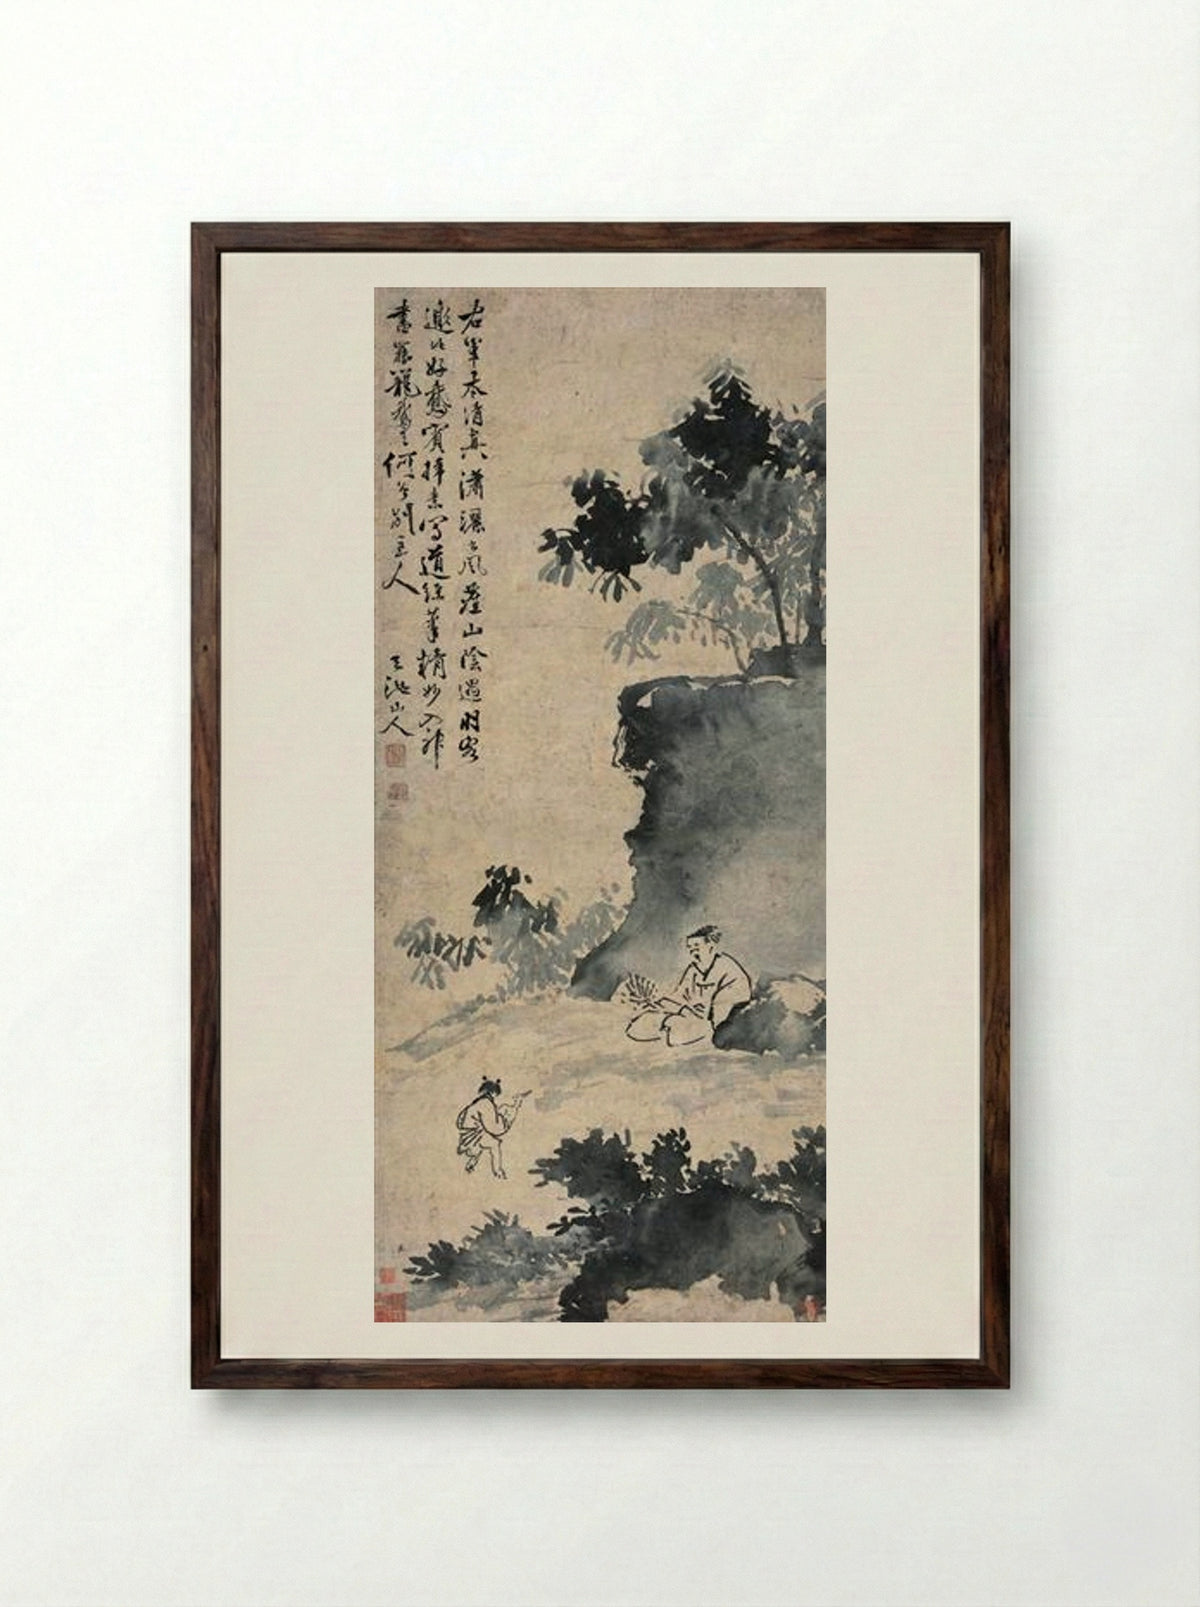 右軍本清真瀟灑在風塵山陰遇羽客
邀此好鵞賓掃素寫道經筆精妙入神
書罷籠鵞去何曽別主人
天池山人